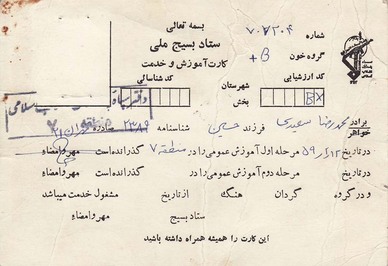 بسمه تعالی
ستاد بسیج ملی
کارت آموزش و خدمت
شماره ۷۰۷۲۰۴
گروه خون B+
کد ارزشیابی
کد شناسائی
شهرستان
بخش
BX
برادر خواهر محمدرضا سعیدی فرزند حسین شناسنامه ۲۳۸۹ صادره تهران
در تاریخ ۵۹ مرحله اول آموزش عمومی را در منطقه ۷ گذرانده است مهر و امضاء
در تاریخ مرحله دوم آموزش عمومی را در گذرانده است مهر و امضاء
و در گروه گردان هنگ از تاریخ مشغول خدمت میباشد
ستاد بسیج مهر و امضاء
این کارت را همیشه همراه داشته باشید